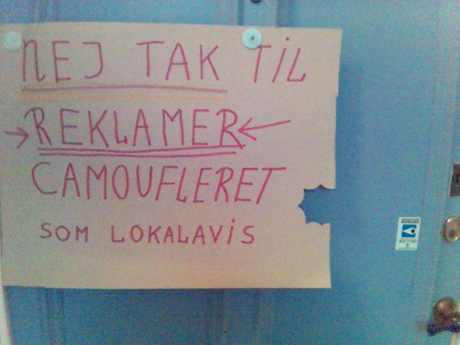 NEJ TAK TIL
REKLAMER
CAMOUFLERET
SOM LOKALAVIS